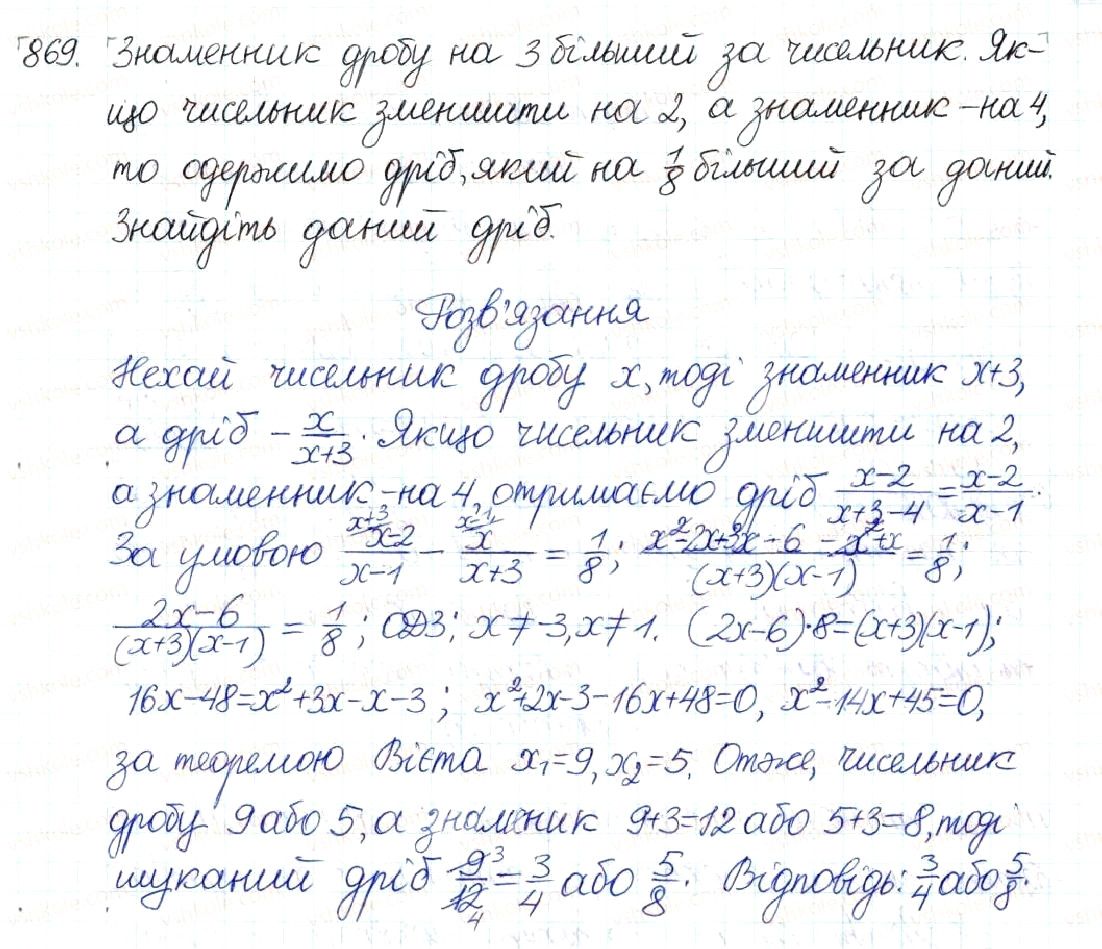 869. Знаменник дробу на 3 більший за чисельник. Як-
що чисельник зменшити на 2, а знаменник – на 4,
то одержимо дріб, який на 1/8 більший за даний.
Знайдіть даний дріб.
Розв'язання
Нехай чисельник дробу x, тоді знаменник x+3,
а дріб – x/(x+3). Якщо чисельник зменшити на 2,
а знаменник – на 4, отримаємо дріб (x-2)/(x+3-4) = (x-2)/(x-1).
За умовою (x-2)/(x-1) - x/(x+3) = 1/8; (x²-2x+3x-6-x²+x)/((x+3)(x-1)) = 1/8;
(2x-6)/((x+3)(x-1)) = 1/8; ОДЗ: x≠-3, x≠1. (2x-6)·8=(x+3)(x-1);
16x-48=x²+3x-x-3; x²+2x-3-16x+48=0, x²-14x+45=0,
за теоремою Вієта x₁=9, x₂=5. Отже, чисельник
дробу 9 або 5, а знаменик 9+3=12 або 5+3=8, тоді
шуканий дріб 9/12 = 3/4 або 5/8. Відповідь: 3/4 або 5/8.